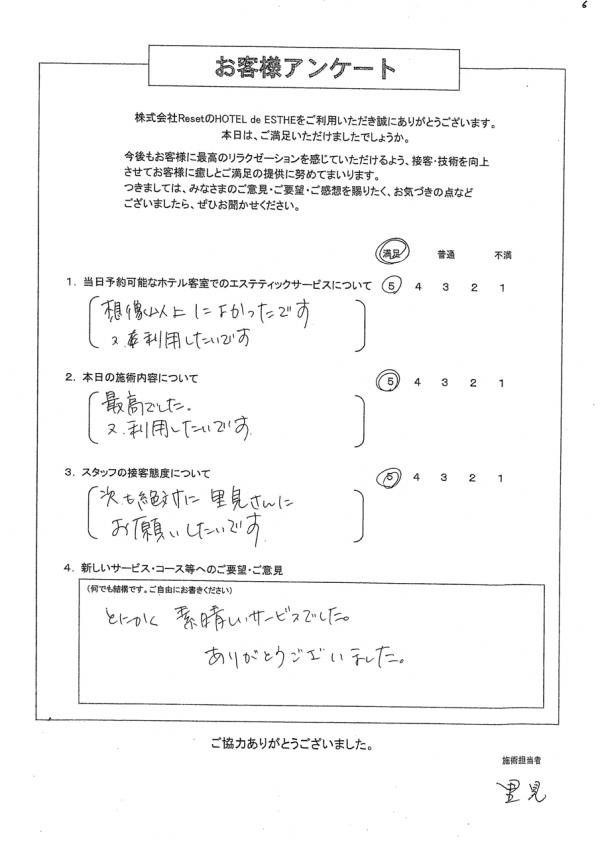 6
お客様アンケート
株式会社ResetのHOTEL de ESTHEをご利用いただき誠にありがとうございます。
本日は、ご満足いただけましたでしょうか。
今後もお客様に最高のリラクゼーションを感じていただけるよう、接客・技術を向上
させてお客様に癒しとご満足の提供に努めてまいります。
つきましては、みなさまのご意見・ご要望・ご感想を賜りたく、お気づきの点など
ございましたら、ぜひお聞かせください。
満足 普通 不満
1. 当日予約可能なホテル客室でのエステティックサービスについて 5 4 3 2 1
想像以上によかったです
又、利用したいです
2. 本日の施術内容について 5 4 3 2 1
最高でした。
又、利用したいです。
3. スタッフの接客態度について 5 4 3 2 1
次も絶対に里見さんに
お願いしたいです。
4. 新しいサービス・コース等へのご要望・ご意見
(何でも結構です。ご自由にお書きください)
とにかく 素晴しいサービスでした。
ありがとうございました。
ご協力ありがとうございました。
施術担当者
里見